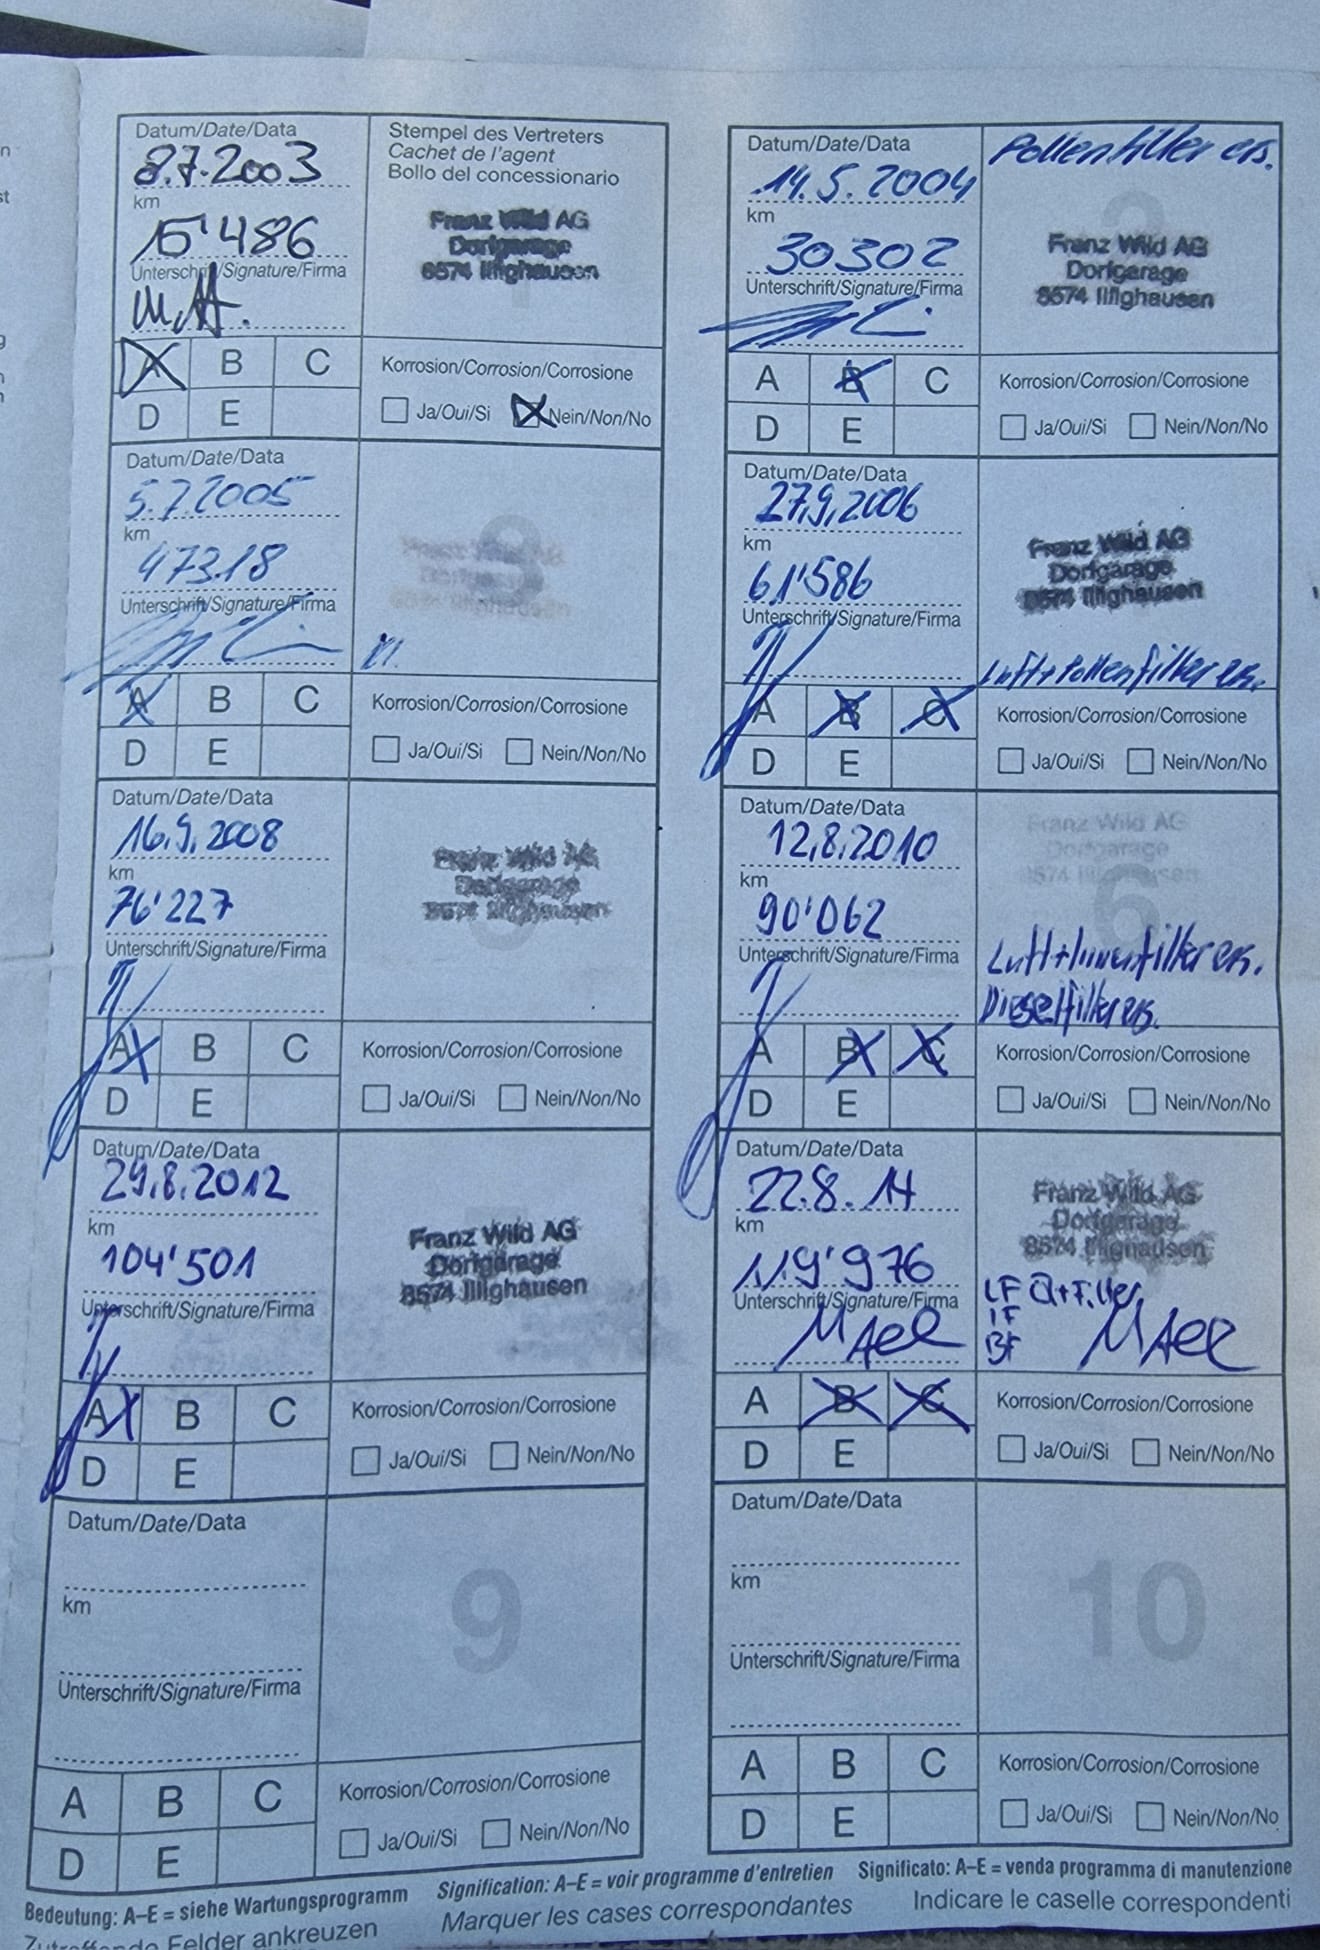 Datum/Date/Data
8.7.2003
km
15'486
Unterschrift/Signature/Firma
Stempel des Vertreters
Cachet de l'agent
Bollo del concessionario
Franz Wild AG
Dorfgarage
8574 Illighausen
1
A B C
D E
Korrosion/Corrosion/Corrosione
Ja/Oui/Si Nein/Non/No
Datum/Date/Data
14.5.2004
km
30302
Unterschrift/Signature/Firma
Pollenfilter ers.
2
Franz Wild AG
Dorfgarage
8574 Illighausen
A B C
D E
Korrosion/Corrosion/Corrosione
Ja/Oui/Si Nein/Non/No
Datum/Date/Data
5.7.2005
km
47318
Unterschrift/Signature/Firma
3
Franz Wild AG
Dorfgarage
8574 Illighausen
A B C
D E
Korrosion/Corrosion/Corrosione
Ja/Oui/Si Nein/Non/No
Datum/Date/Data
27.9.2006
km
61'586
Unterschrift/Signature/Firma
Franz Wild AG
Dorfgarage
8574 Illighausen
Luft+Pollenfilter ers.
A B C
D E
Korrosion/Corrosion/Corrosione
Ja/Oui/Si Nein/Non/No
Datum/Date/Data
16.9.2008
km
76'227
Unterschrift/Signature/Firma
Franz Wild AG
Dorfgarage
8574 Illighausen
5
A B C
D E
Korrosion/Corrosion/Corrosione
Ja/Oui/Si Nein/Non/No
Datum/Date/Data
12.8.2010
km
90'062
Unterschrift/Signature/Firma
Franz Wild AG
Dorfgarage
8574 Illighausen
6
Luft+Innenfilter ers.
Dieselfilter ers.
A B C
D E
Korrosion/Corrosion/Corrosione
Ja/Oui/Si Nein/Non/No
Datum/Date/Data
29.8.2012
km
104'501
Unterschrift/Signature/Firma
Franz Wild AG
Dorfgarage
8574 Illighausen
A B C
D E
Korrosion/Corrosion/Corrosione
Ja/Oui/Si Nein/Non/No
Datum/Date/Data
22.8.14
km
119'976
Unterschrift/Signature/Firma
Franz Wild AG
Dorfgarage
8574 Illighausen
LF Öl+Filter
IF
BF
A B C
D E
Korrosion/Corrosion/Corrosione
Ja/Oui/Si Nein/Non/No
Datum/Date/Data
km
Unterschrift/Signature/Firma
9
A B C
D E
Korrosion/Corrosion/Corrosione
Ja/Oui/Si Nein/Non/No
Datum/Date/Data
km
Unterschrift/Signature/Firma
10
A B C
D E
Korrosion/Corrosion/Corrosione
Ja/Oui/Si Nein/Non/No
Bedeutung: A–E = siehe Wartungsprogramm
Felder ankreuzen
Signification: A–E = voir programme d'entretien
Marquer les cases correspondantes
Significato: A–E = venda programma di manutenzione
Indicare le caselle correspondenti